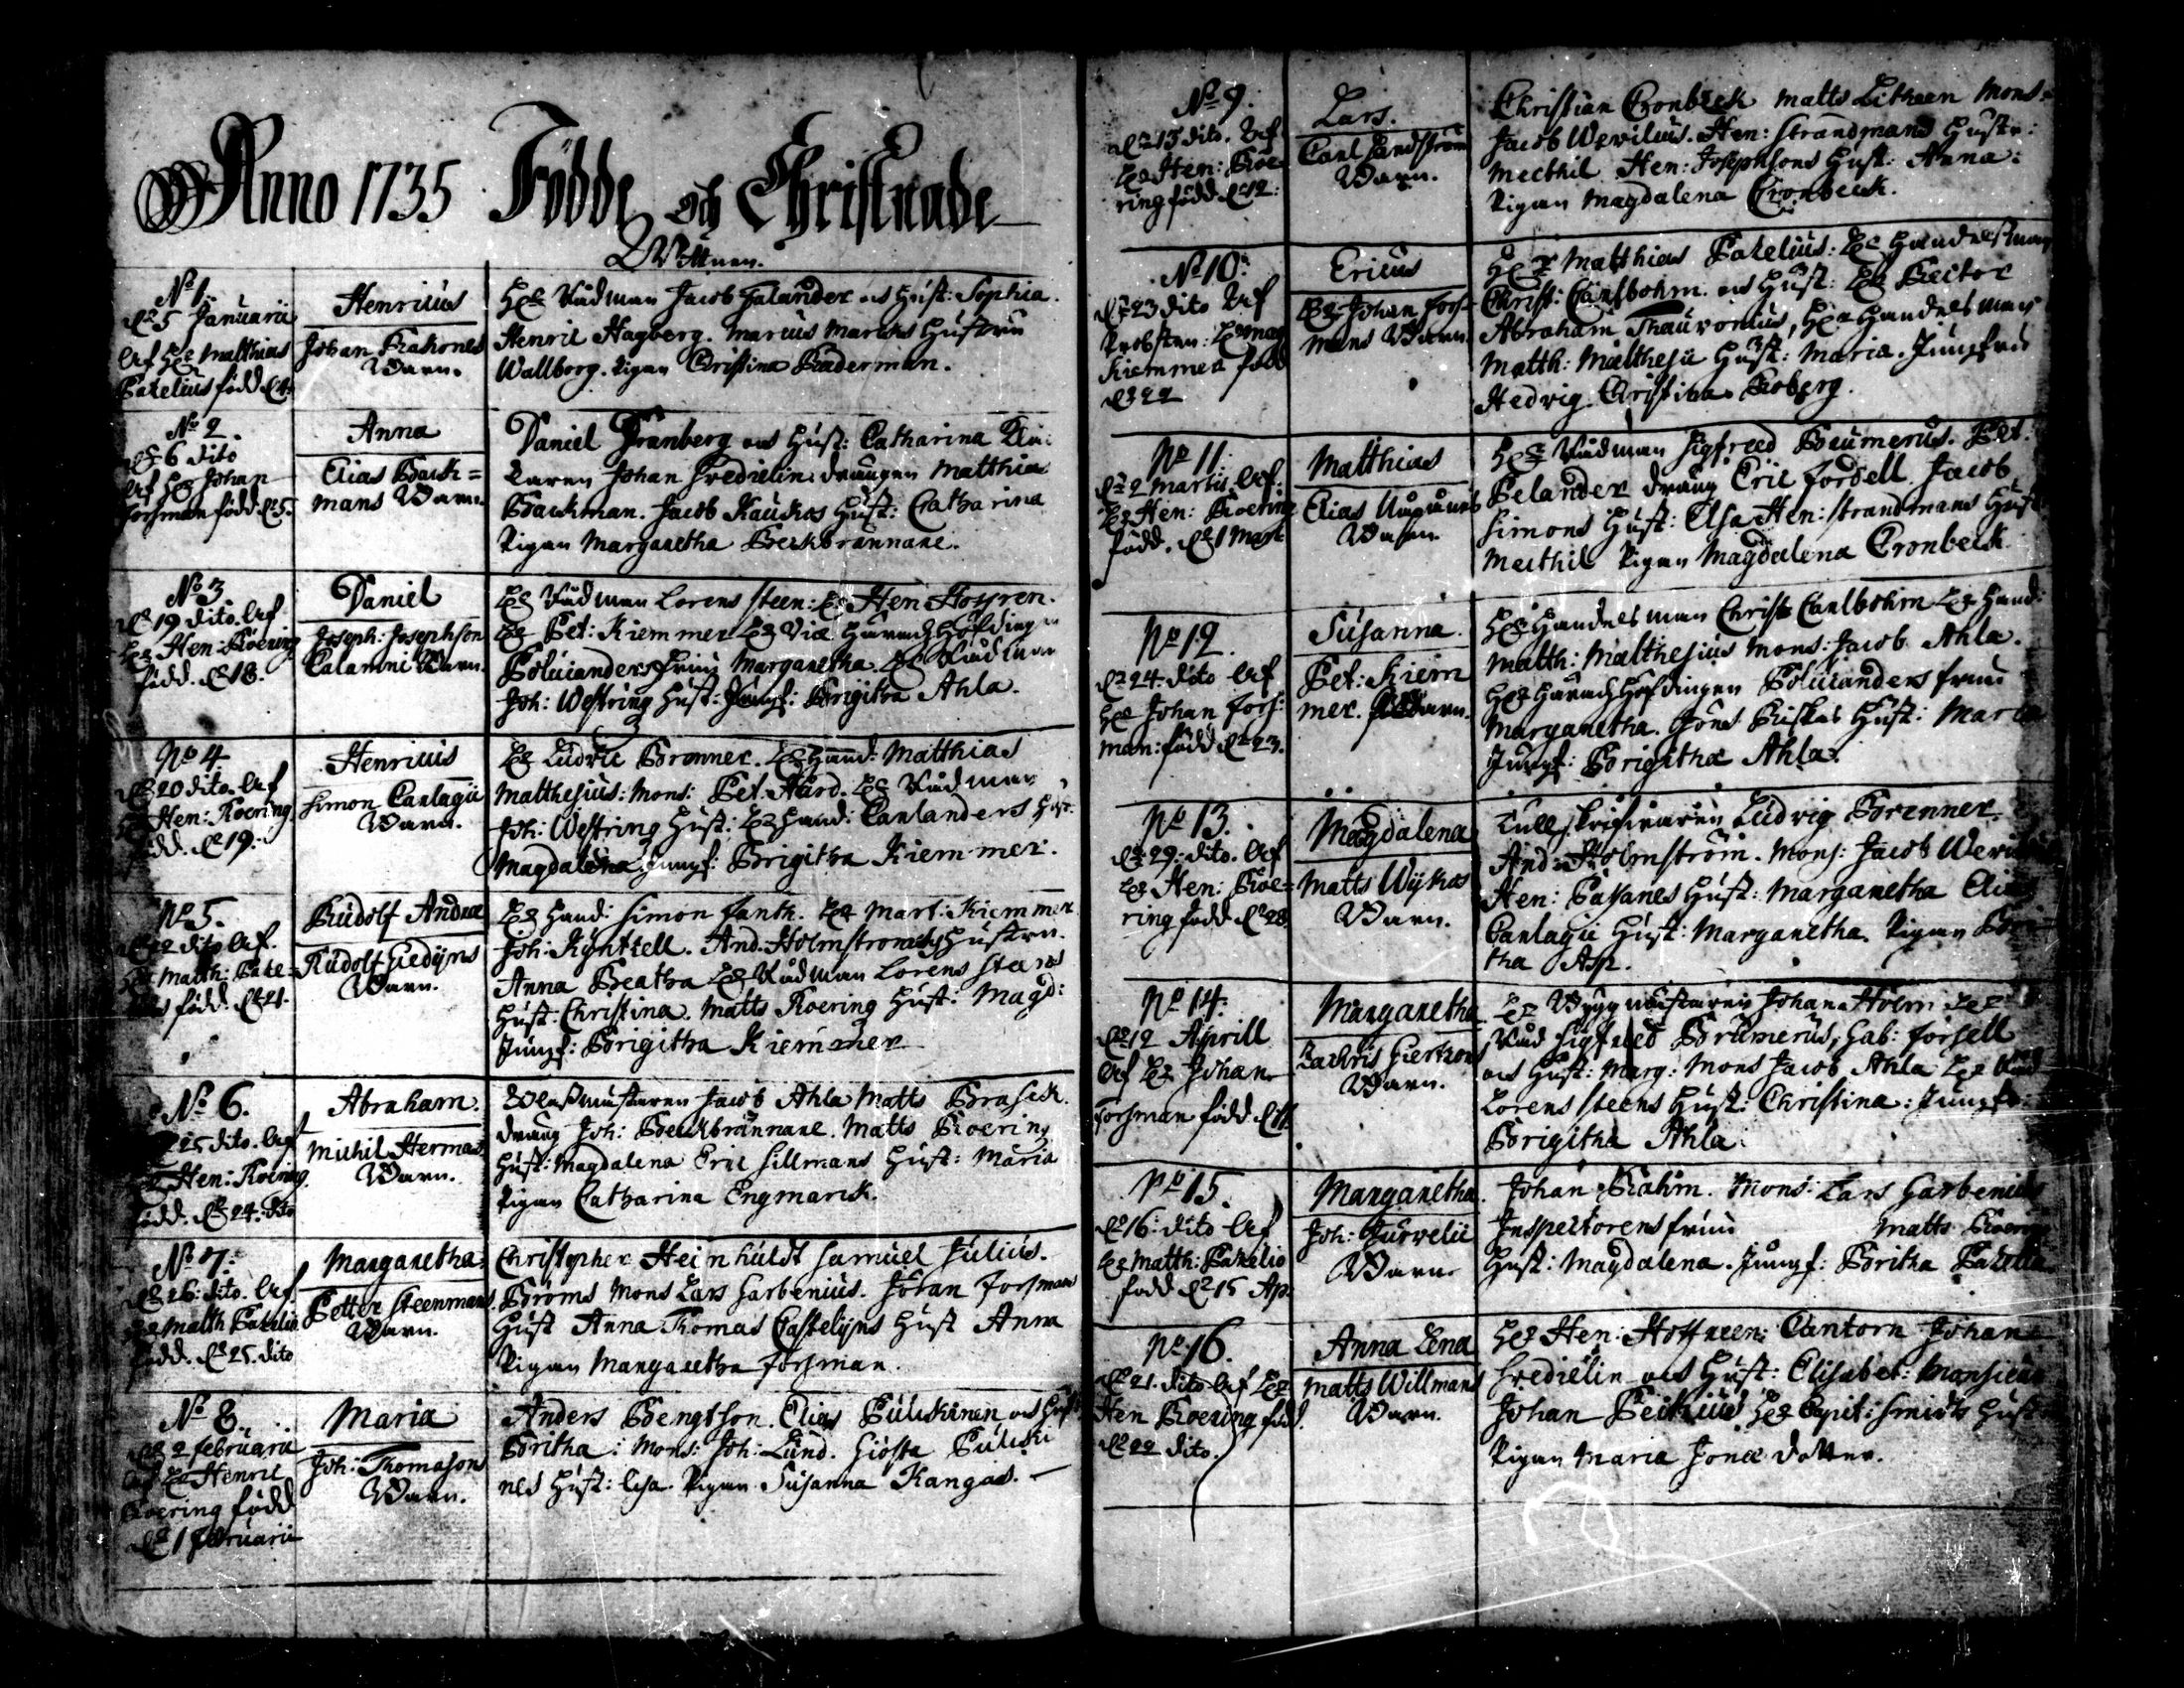 Anno 1735 Födde och Christnade
Wittnen.
No 1.
d 5 Januarii
af Hr Matthias
Pazelius född d 4.
Henricus
Johan Rahones
Barn.
Hr Rådman Jacob Falander och Hust: Sophia.
Henric Hagberg. Marcus Marckus Hustru
Wallborg. Pigan Christina Raderman.
No 2.
d 6 dito
af Hr Johan
Forsman född d 5.
Anna
Elias Back=
mans Barn.
Daniel Granberg och Hust: Catharina
Johan Fredielin: drängen Matthias
Backman. Jacob Kauskos Hust: Catharina
Pigan Margaretha Beckbrännare.
No 3.
d 19 dito. af
Hr Hen: Roering
född. d 18.
Daniel
Joseph: Josephson
Calamni Barn.
Hr Rådman Lorens Steen: Hr Hen
Hr Pet: Kiemmer Hr Vice Häradshöfdingen
Polvianders Fruu Margaretha. Hr Rådman
Joh: Westring Hust: Jungf: Brigitha Ahla.
No 4
d 20 dito. af
Hr Hen: Roering
född. d 19.
Henricus
Simon Carlagii
Barn.
Hr Ludvic Brenner. Hr Hand: Matthias
Matthesius: Mons: Pet. Hård. Hr Rådman
Joh: Westring Hust: Hr Hand: Carlanders Hust:
Magdalena. Jungf: Brigitha Kiemmer.
No 5.
d 22 dito af.
Hr Matth: Paze=
lius född. d 21.
Rudolf Andreæ
Rudolf Gedijns
Barn.
Hr Hand: Simon Fanth. Hr Mart: Kiemmer
Joh: Kyntzell. And. Holmstroms Hustru.
Anna Beatha Hr Rådman Lorens Steens
Hust: Christina. Matts Roering Hust: Magd:
Jungf: Brigitha Kiemmer
No 6.
d 25 dito. af
Hr Hen: Roering.
född. d 24. dito
Abraham.
Michil Hermas
Barn.
Jacob Ahla Matts Brasck.
dräng Joh: Beckbrännare. Matts Roering
Hust: Magdalena Eric Sillmans Hust: Maria
Pigan Catharina Engmarck.
No 7:
d 26: dito. af
Hr Matth Pazelii
född. d 25. dito
Margaretha.
Petter Steenmans.
Barn.
Christopher Heinhuldt Samuel Julius.
Broms Mons Lars Garbenius. Johan Forsmans
Hust Anna Thomas Castelijns Hust Anna
Pigan Margaretha Forsman.
No 8.
d 2 Februarii
af Hr Henric
Roering född
d 1 Februarii
Maria
Joh: Thomasons
Barn.
Anders Bengtson. Elias Puluskinen och Hust
Britha: Mons: Joh: Lund. Giösta Puluski
nes Hust: Lisa. Pigan Susanna Kangas.
No 9.
d 13 dito. af
Hr Hen: Roe=
ring född d 12:
Lars.
Carl Sandström
Barn.
Christian Cronbeck Matts Litheen Mons=
Jacob Wevilius. Hen: Strandmans Hustr:
Mecthil Hen: Josephsons Hust: Anna:
Pigan Magdalena Cronbeck.
No 10:
d 23 dito af
Probsten: Hr Mag
Kiemmer född
d 22
Ericus
Hr Johan Fors=
mans Barn.
Hr Matthias Pazelius: Hr Handelsman
Christ: Carlbohm. och Hust: Hr Rector
Abraham Thauvonius, Hr Handelsman
Matth: Matthesii Hust: Maria. Jungfru
Hedvig Christina Roberg.
No 11
d 2 Martii. af:
Hr Hen: Roering
född. d 1 Mart
Matthias
Elias
Barn.
Hr Rådman Sigfreed Brumerus. Pet.
Pelander dräng Eric Fordell. Jacob
Simons Hust: Elsa Hen: Strandmans Hust
Mecthil Pigan Magdalena Cronbeck
No 12.
d 24: dito af
Hr Johan Fors:
man: född d 23.
Susanna.
Pet: Kiem
mer. Barn.
Hr Handelsman Christ Carlbohm Hr Hand:
Matth: Matthesius Mons: Jacob Ahla.
Hr Häradshöfdingen Polvianders Fruu
Margaretha. Jöns Piskas Hust: Maria
Jungf: Brigitha Ahla.
No 13.
d 29: dito. af
Hr Hen: Roe=
ring född. d 28.
Magdalena
Matts Wijkas
Barn.
Tullskrifvaren Ludvig Brenner.
And: Holmström. Mons: Jacob
Hen: Hust: Margaretha Elias
Carlagii Hust: Margaretha. Pigan Bri=
tha Asp.
No 14:
d 12 Aprill
af Hr Johan
Forsman född d 11.
Margaretha
Zachris Giertzons
Barn.
Hr Byggmästaren Johan Holm: Hr
Råd Sigfreed Brumerus, Gab: Forsell
och Hust: Marg: Mons Jacob Ahla Hr Råd
Lorens Steens Hust: Christina: Jungfr:
Brigitha Ahla.
No 15.
d 16: dito af
Hr Matth: Pazelio
född d 15 Ap.
Margaretha.
Joh: Jurvelii
Barn.
Johan Brahm. Mons: Lars Garbenius
Inspectorens Fruu Matts Roering
Hust: Magdalena. Jungf: Britha Pazelia
No 16.
d 21. dito af Hr
Hen Roering född.
d 22 dito.
Anna Lena
Matts Willmans
Barn.
Hr Hen: Cantorn Johan
Fredielin och Hust: Elisabet: Monsieur
Johan Hr Capit: Smidts Hustr
Pigan Maria Jonæ dotter.